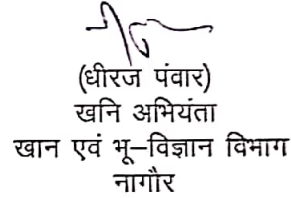 (धीरज पंवार)
खनि अभियंता
खान एवं भू–विज्ञान विभाग
नागौर